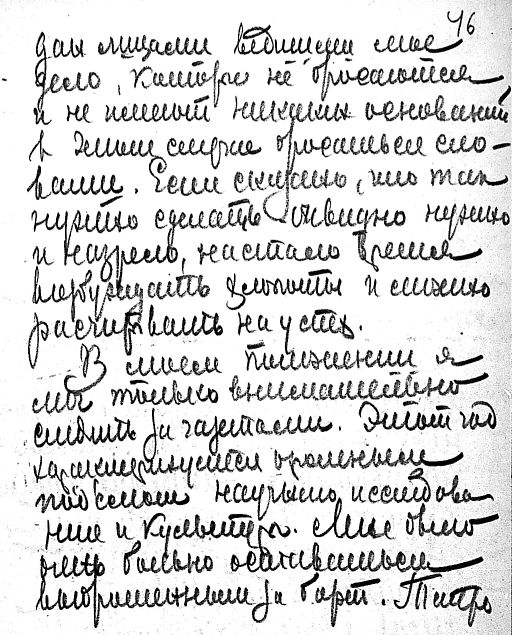 46
дам лицами ведшими мое
дело, которые не бросаются
и не имеют никаких оснований
в этом случае бросаться сло-
вами. Если сказано, что так
нужно сделать очевидно нужно
и назрело, настало время
возбуждать хлопоты и можно
расчитывать на успех.
В моем положении я
мог только внимательно
следить за газетами. Этот год
характеризуется огромным
подъемом научных исследова
ний и культуры. Мне было
очень больно оставаться
выброшенным за борт. Теперь